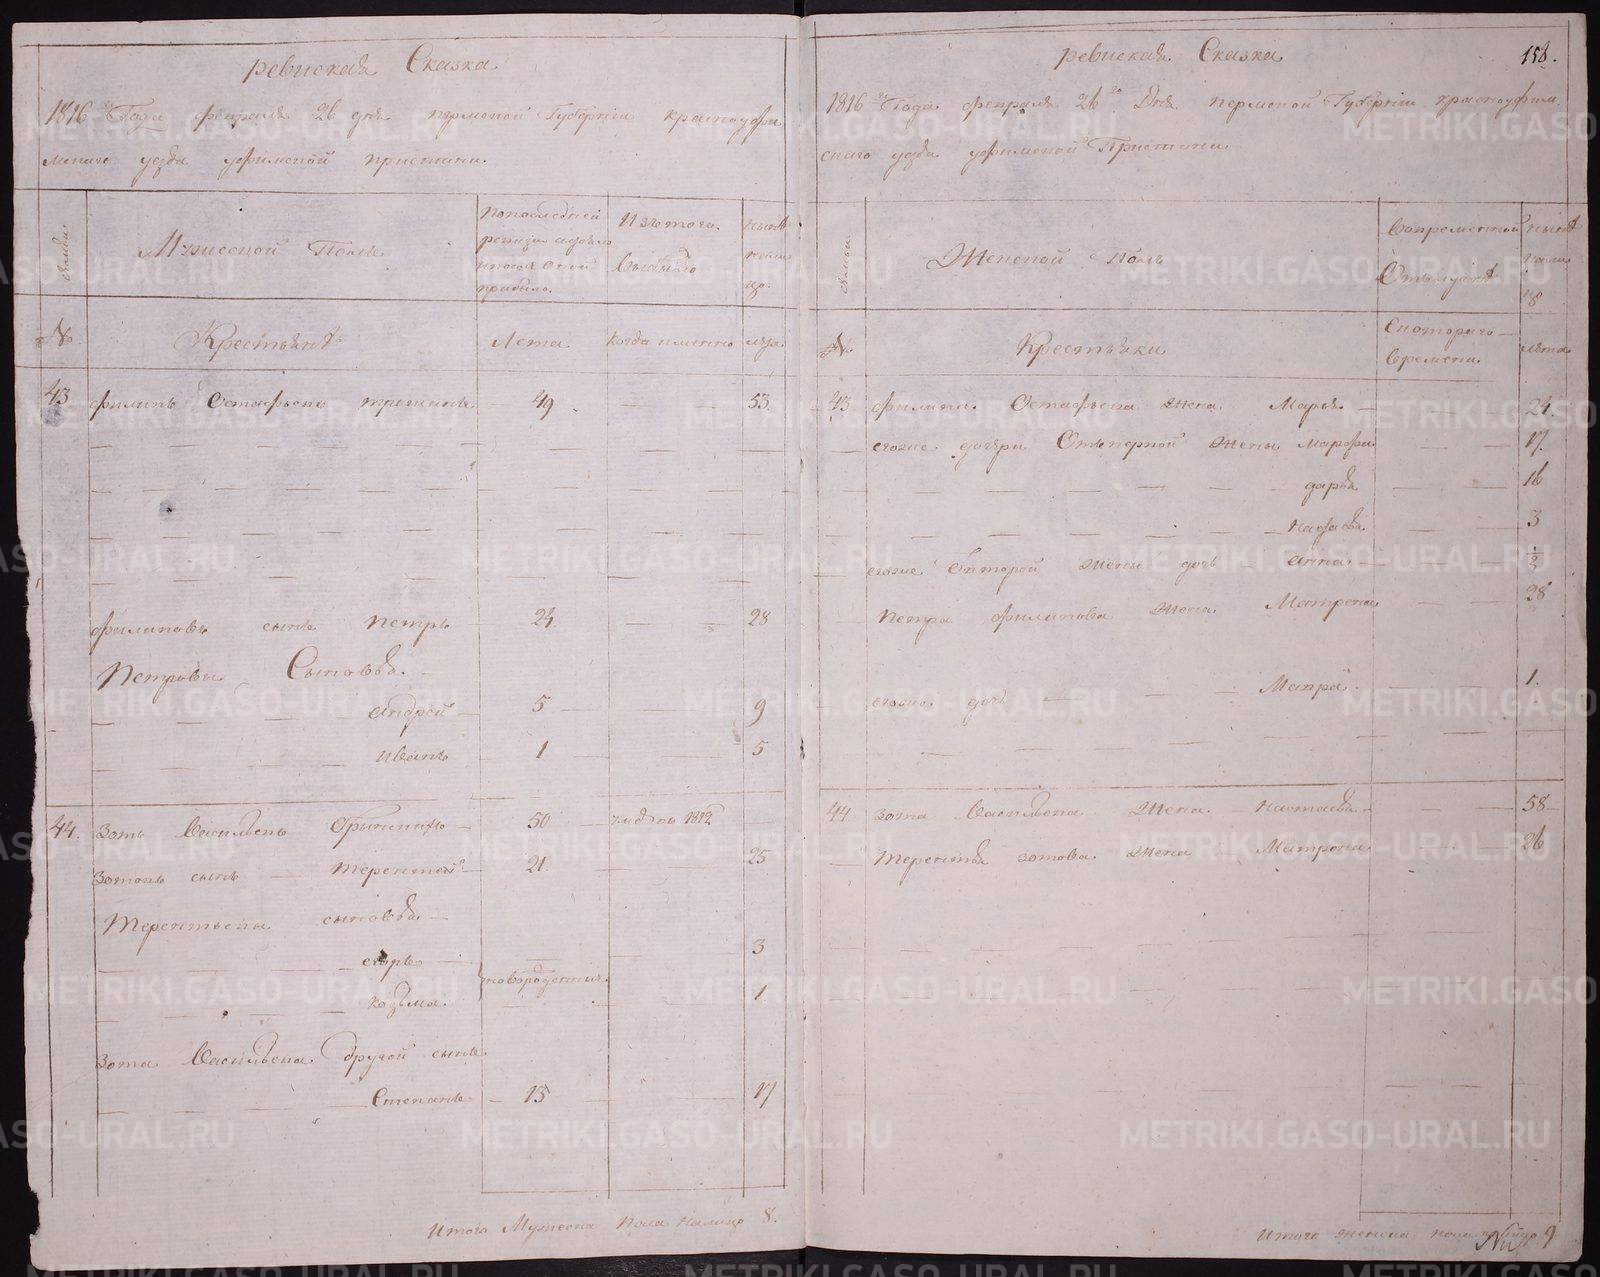 ревиская Сказка
1816го Года февраля 26 дня пермской Губернии красноуфи
мскаго уезда уфимской пристани.
семьи
Мужеской Полъ
По последней
ревизии
после оной
прибыло.
Изъ того
выбыло
ныне
нали
цо.
№
Крестьяне
Лета.
Когда имянно
лета
43 филипъ Остафьевъ 49 53
филиповъ сынъ петръ 24 28
Петровы Сыновья.
андрей 5 9
иванъ 1 5
44. Зотъ Васильевъ 50 1812 —
Зотовъ сынъ терентей 21. 25
Терентьевы сыновья
егоръ 3
новорожденные
козьма. 1
Зота Васильева другой сынъ
Степанъ 13 17
Итого Мужеска пола налицо 8.
ревиская Сказка
158.
1816го Года февраля 26го Дня пермской Губернии красноуфим
скаго уезда уфимской Пристани.
семьи
Женской Полъ
Во временной
Отлучке
ныне
нали
цо
№
Крестьянки
Скотораго
времени.
лета
43 филипа Остафьева жена Марья 24.
ево же дочери От первой жены марфа 17.
дарья 16
3
ево же второй жены дочь анна 1/2
петра филипова жена Матрена 28
ево же дочь Мавра 1.
44 зота Васильева жена 58
терентья зотова жена Матрена 26
Итого женска пола налицо 9